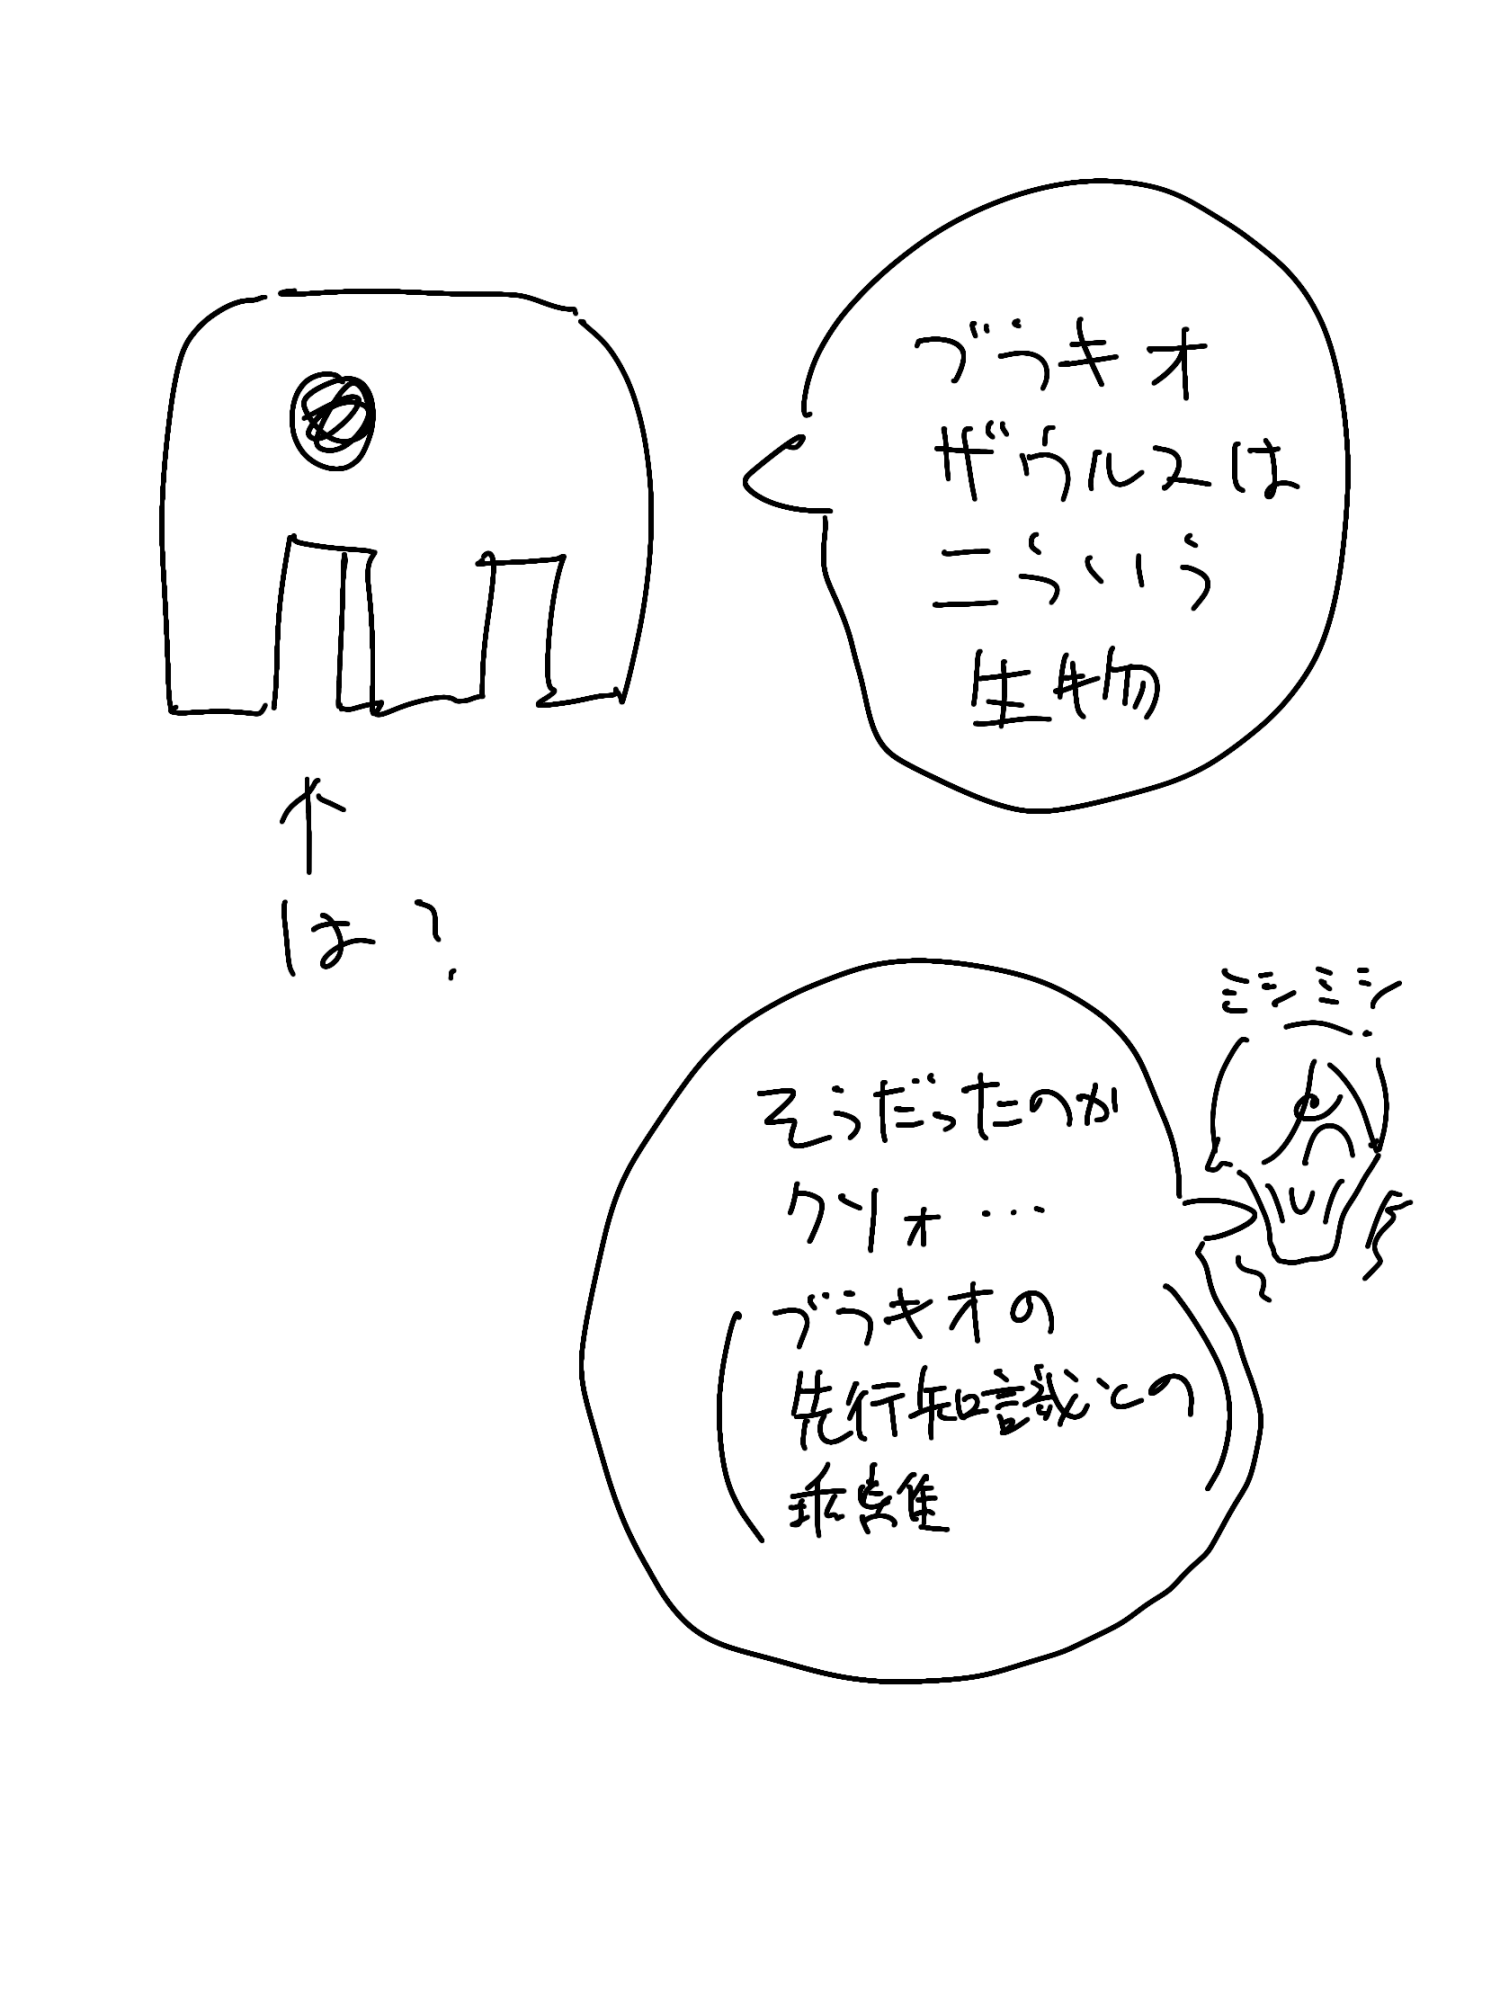 ブラキオ
ザウルスは
こういう
生物
は?
ミシミシ
そうだったのか
クソォ…
ブラキオの
先行知識との
乖離